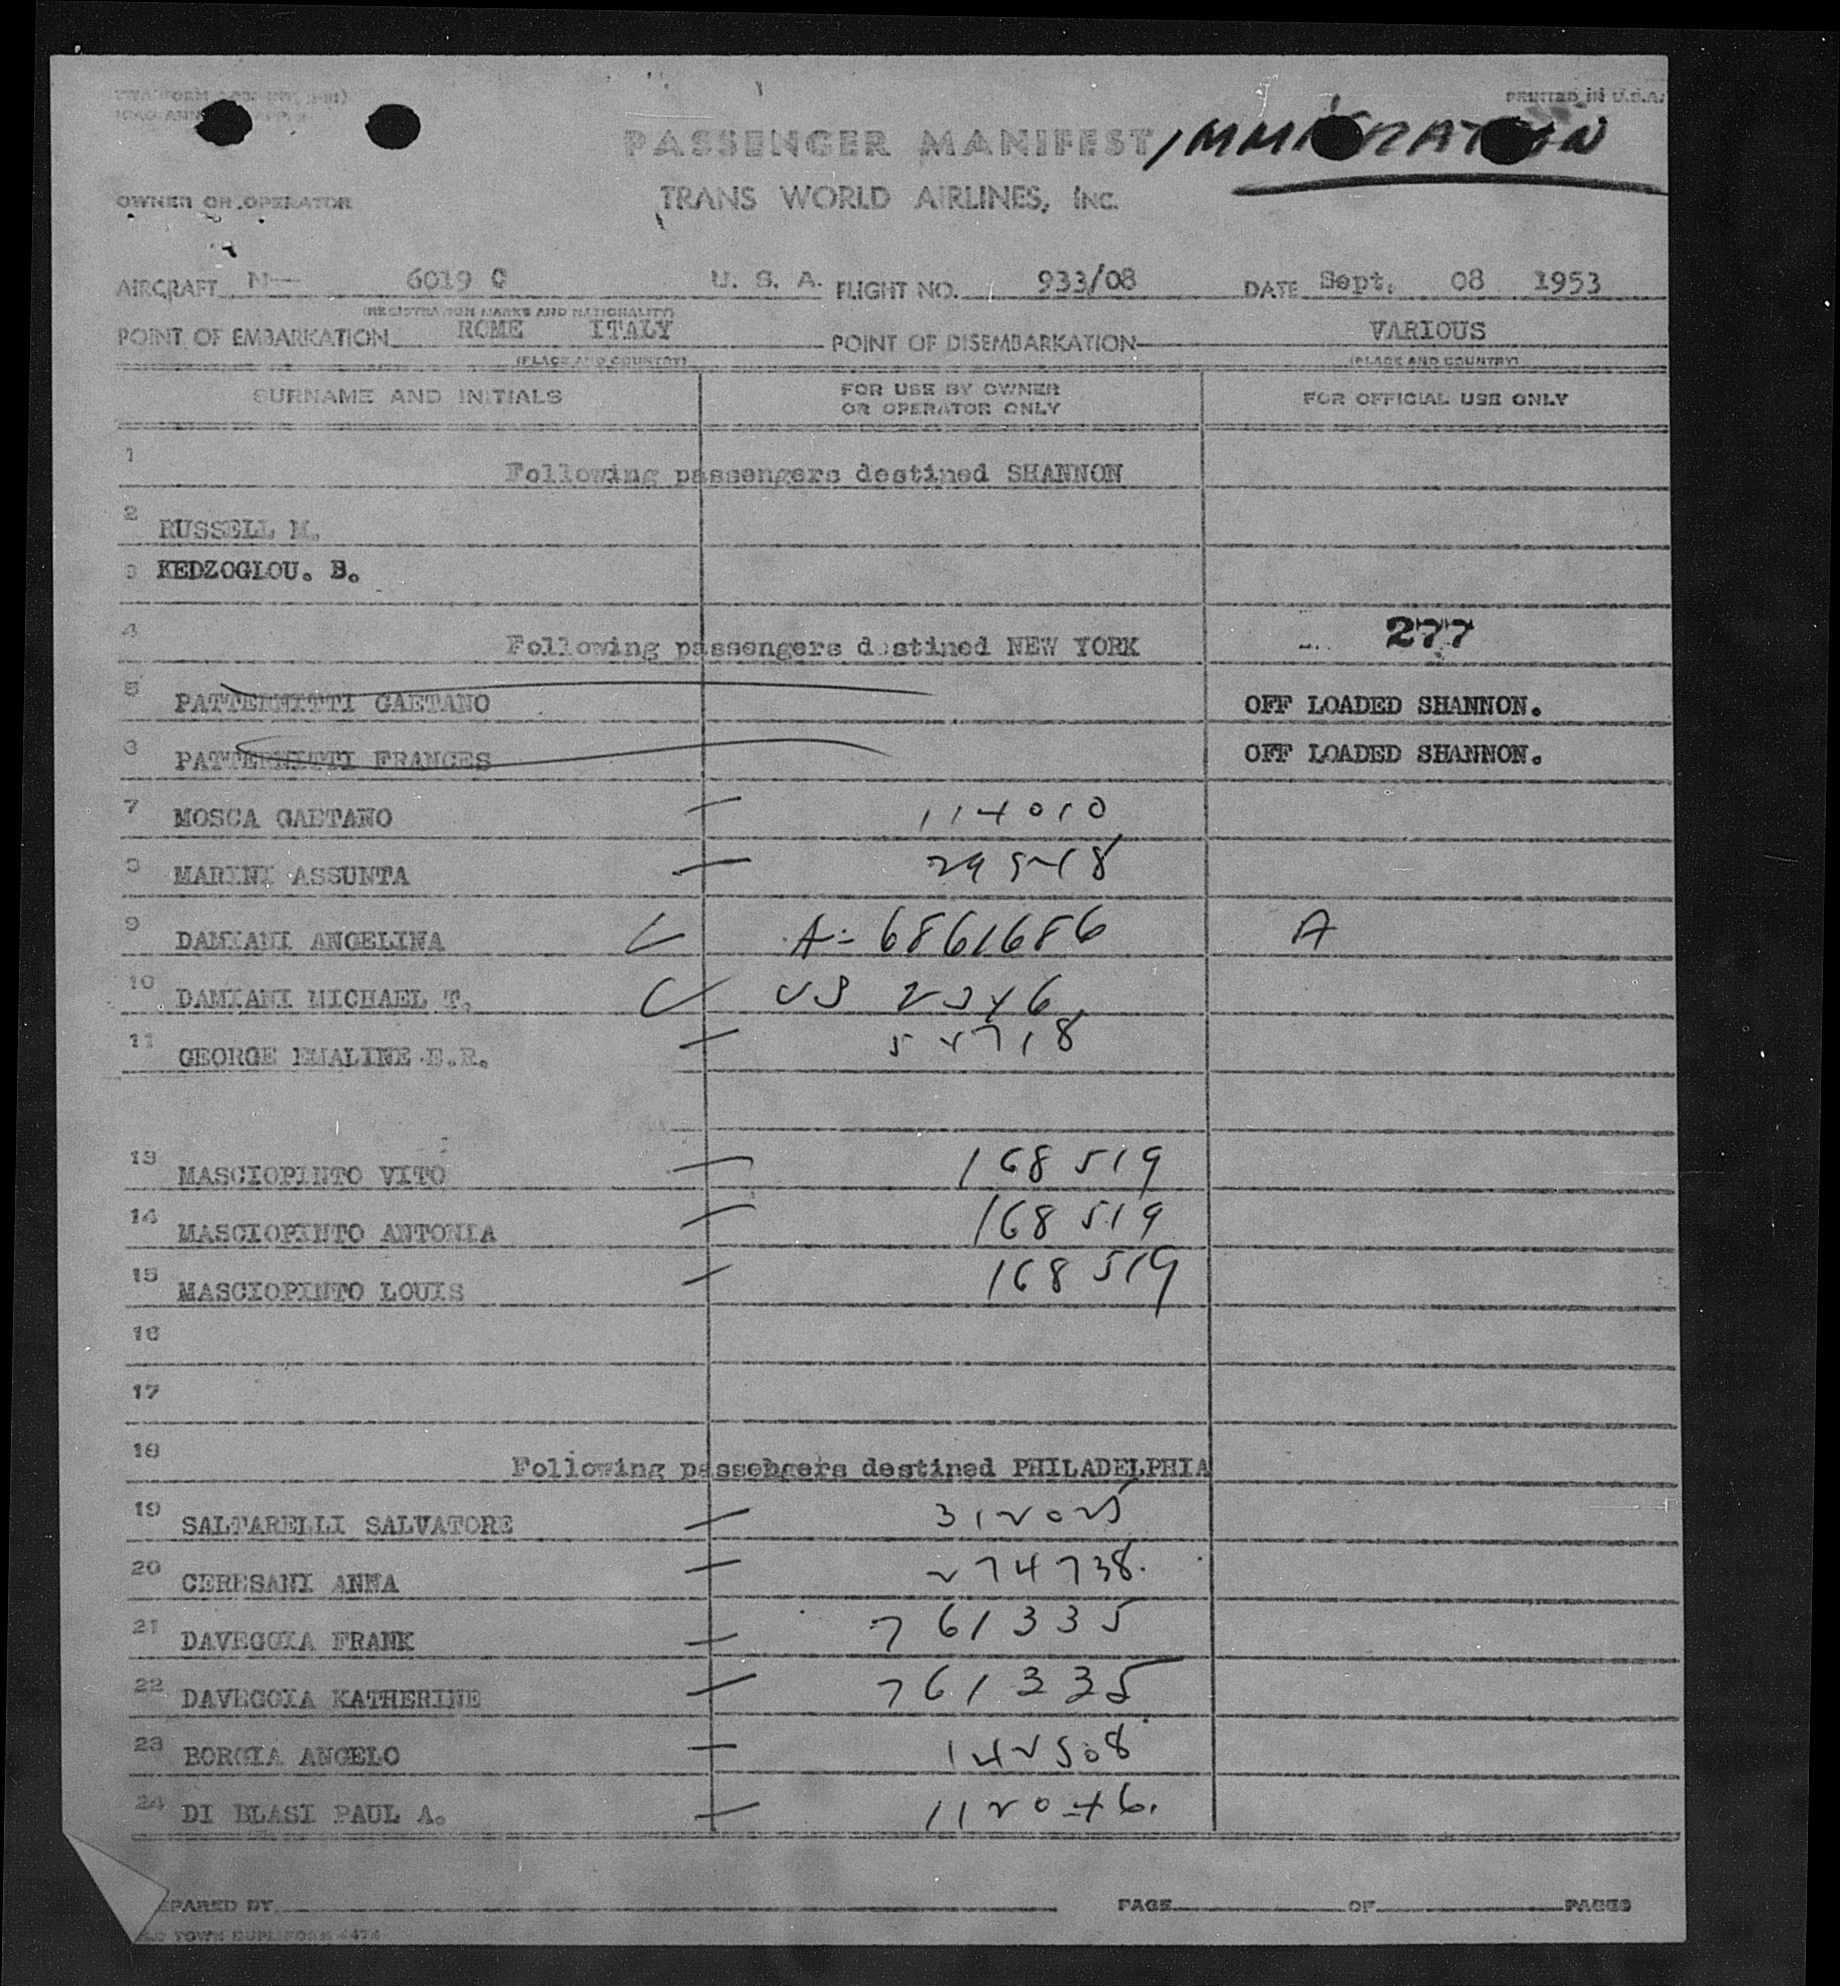 PRINTED IN U.S.A.
PASSENGER MANIFEST IMMIGRATION
OWNER OR OPERATOR
TRANS WORLD AIRLINES, INC.
AIRCRAFT N— 6019 C U. S. A. FLIGHT NO. 933/08 DATE Sept. 08 1953
(REGISTRATION MARKS AND NATIONALITY)
POINT OF EMBARKATION ROME ITALY POINT OF DISEMBARKATION VARIOUS
(PLACE AND COUNTRY) (PLACE AND COUNTRY)
SURNAME AND INITIALS FOR USE BY OWNER OR OPERATOR ONLY FOR OFFICIAL USE ONLY
1 Following passengers destined SHANNON
2 RUSSELL M.
3 KEDZOGLOU. B.
4 Following passengers destined NEW YORK 277
5 PATTERNITTI GAETANO OFF LOADED SHANNON.
6 PATTERNITTI FRANCES OFF LOADED SHANNON.
7 MOSCA GAETANO — 114010
8 MARINI ASSUNTA — 29518
9 DAMIANI ANGELINA A-6861686 A
10 DAMIANI MICHAEL T. US
11 GEORGE EMALINE E.R. —
13 MASCIOPINTO VITO — 168519
14 MASCIOPINTO ANTONIA — 168519
15 MASCIOPINTO LOUIS — 168519
16
17
18 Following passengers destined PHILADELPHIA
19 SALTARELLI SALVATORE — 312025
20 CERESANI ANNA — 274738.
21 DAVEGGIA FRANK — 761335
22 DAVEGGIA KATHERINE — 761335
23 BORGIA ANGELO — 142508
24 DI BLASI PAUL A. — 112046.
PREPARED BY PAGE OF PAGES